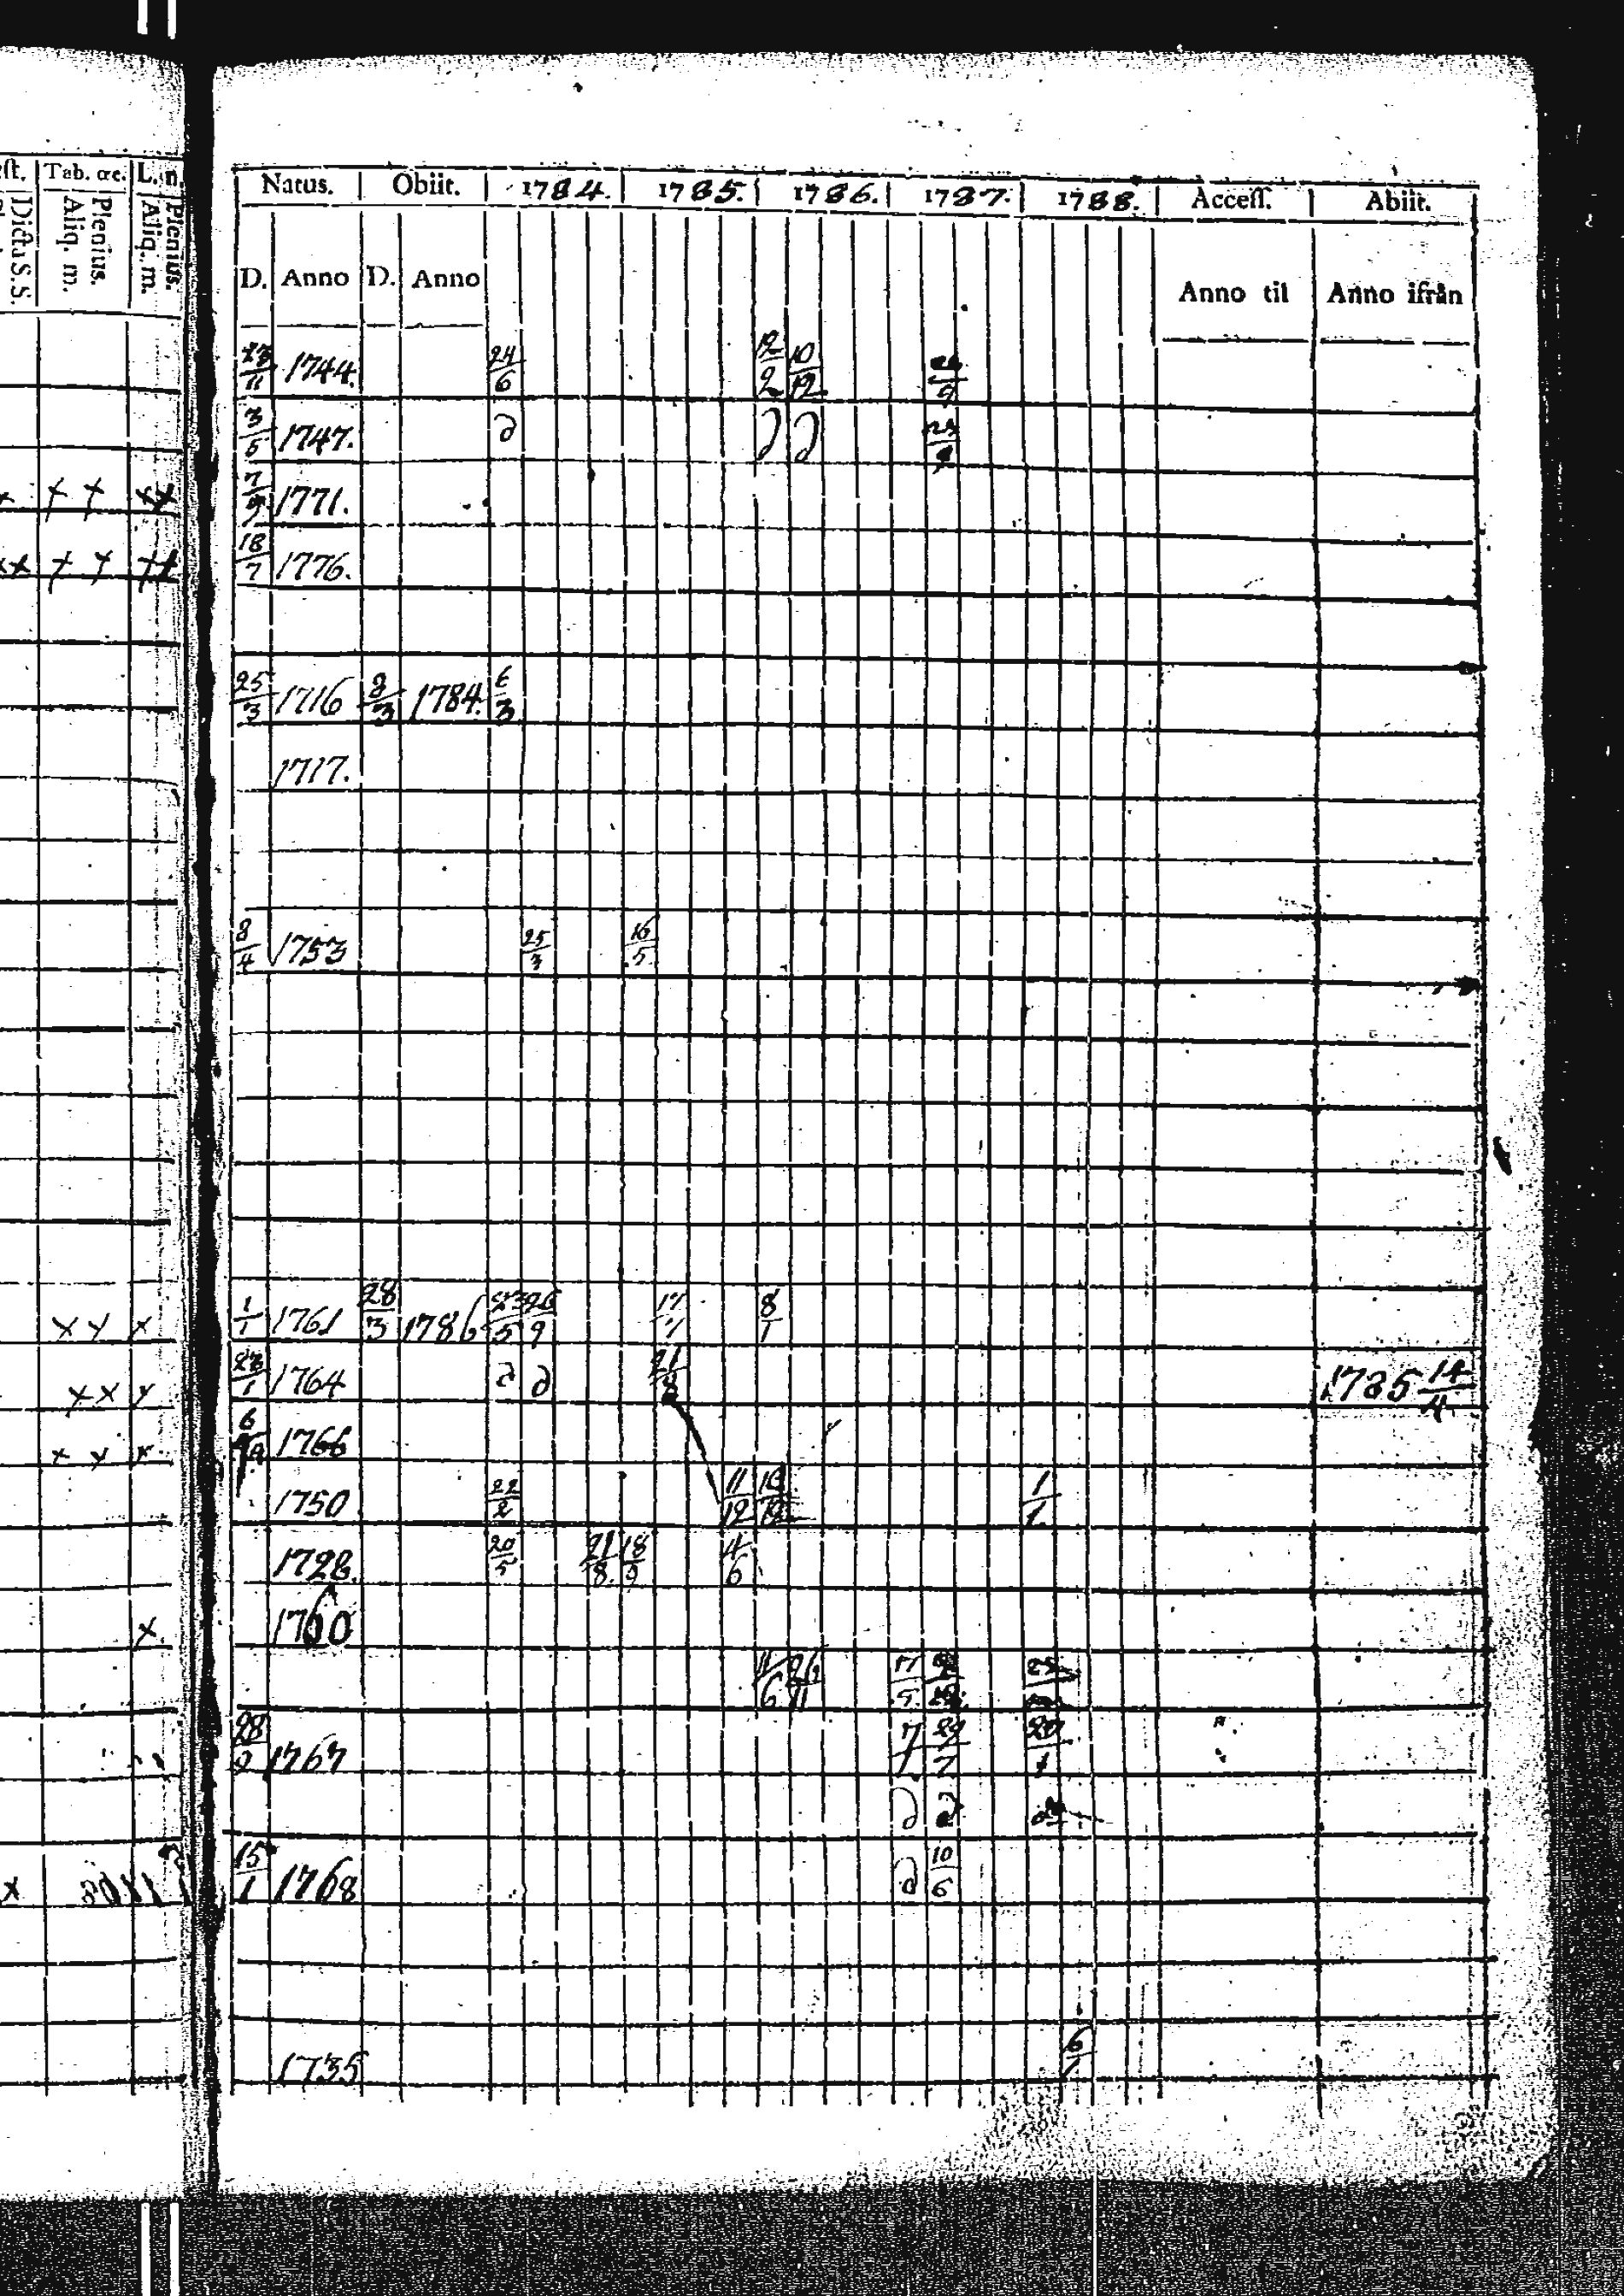 Tab. &c. L. n.
Dictu S. S. Plenius. Aliq. m. Plenius. Aliq. m.
Natus. Obiit. 1784. 1785. 1786. 1787. 1788. Access. Abiit.
D. Anno D. Anno Anno til Anno ifrån
23/11 1744. 24/6 12/2 10/12
3/5 1747. d d d
x x xx 7/9 1771.
xx x x xx 18/7 1776.
25/3 1716 2/3 1784. 6/3
1717.
8/4 1753 25/3 16/5
x x x 1/1 1761 28/3 1786 23/5 26/9 17/7 8/1
x x x 23/1 1764 d d 21/8 1785 14/4
x x x 6 1766
1750 22/2 11/12 1/1
1728. 20/5 21/8. 18/9 4/6
x 1760
11/6 26/11 17/5
28/2 1767 7/1 29/7 20/1
d d
x 15/1 1768 d 10/6
1735 6/1